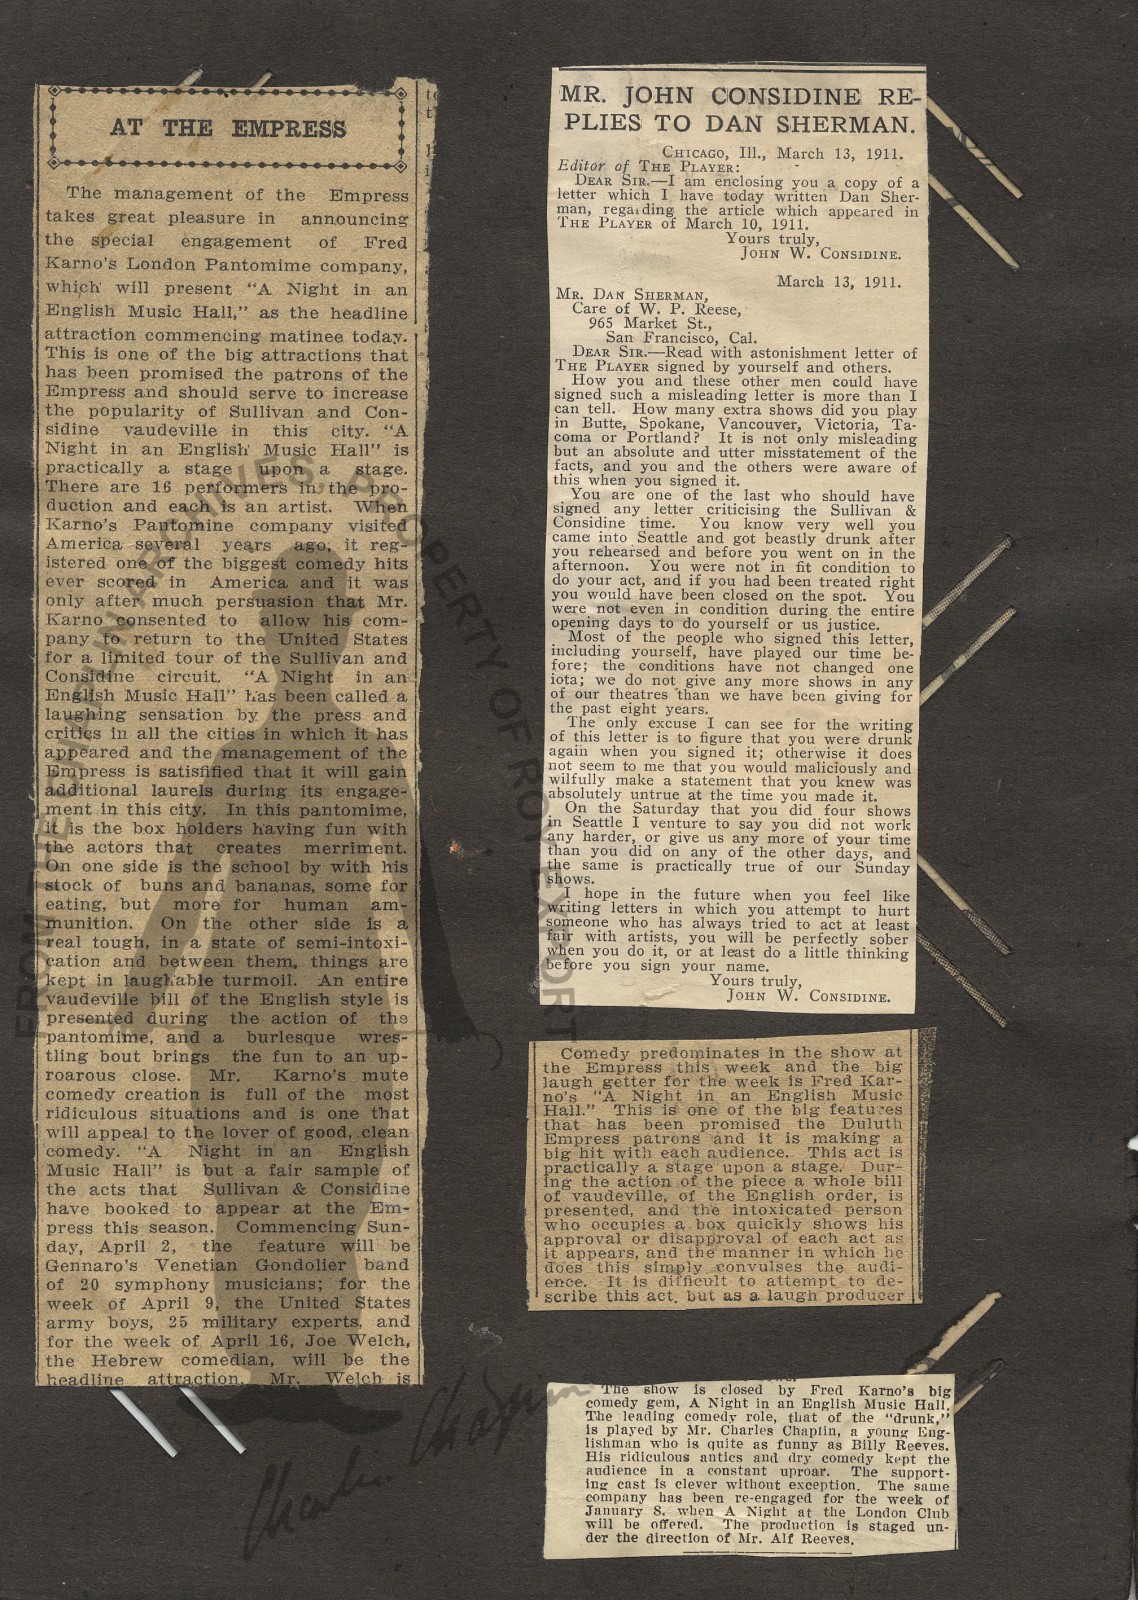 AT THE EMPRESS
The management of the Empress
takes great pleasure in announcing
the special engagement of Fred
Karno's London Pantomime company,
which will present "A Night in an
English Music Hall," as the headline
attraction commencing matinee today.
This is one of the big attractions that
has been promised the patrons of the
Empress and should serve to increase
the popularity of Sullivan and Con-
sidine vaudeville in this city. "A
Night in an English Music Hall" is
practically a stage upon a stage.
There are 16 performers in the pro-
duction and each is an artist. When
Karno's Pantomine company visited
America several years ago, it reg-
istered one of the biggest comedy hits
ever scored in America and it was
only after much persuasion that Mr.
Karno consented to allow his com-
pany to return to the United States
for a limited tour of the Sullivan and
Considine circuit. "A Night in an
English Music Hall" has been called a
laughing sensation by the press and
critics in all the cities in which it has
appeared and the management of the
Empress is satisfified that it will gain
additional laurels during its engage-
ment in this city. In this pantomime,
it is the box holders having fun with
the actors that creates merriment.
On one side is the school by with his
stock of buns and bananas, some for
eating, but more for human am-
munition. On the other side is a
real tough, in a state of semi-intoxi-
cation and between them, things are
kept in laughable turmoil. An entire
vaudeville bill of the English style is
presented during the action of the
pantomime, and a burlesque wres-
tling bout brings the fun to an up-
roarous close. Mr. Karno's mute
comedy creation is full of the most
ridiculous situations and is one that
will appeal to the lover of good, clean
comedy. "A Night in an English
Music Hall" is but a fair sample of
the acts that Sullivan & Considine
have booked to appear at the Em-
press this season. Commencing Sun-
day, April 2, the feature will be
Gennaro's Venetian Gondolier band
of 20 symphony musicians; for the
week of April 9, the United States
army boys, 25 military experts, and
for the week of April 16, Joe Welch,
the Hebrew comedian, will be the
headline attraction. Mr. Welch is
MR. JOHN CONSIDINE RE-
PLIES TO DAN SHERMAN.
CHICAGO, Ill., March 13, 1911.
Editor of THE PLAYER:
DEAR SIR.—I am enclosing you a copy of a
letter which I have today written Dan Sher-
man, regarding the article which appeared in
THE PLAYER of March 10, 1911.
Yours truly,
JOHN W. CONSIDINE.
March 13, 1911.
MR. DAN SHERMAN,
Care of W. P. Reese,
965 Market St.,
San Francisco, Cal.
DEAR SIR.—Read with astonishment letter of
THE PLAYER signed by yourself and others.
How you and these other men could have
signed such a misleading letter is more than I
can tell. How many extra shows did you play
in Butte, Spokane, Vancouver, Victoria, Ta-
coma or Portland? It is not only misleading
but an absolute and utter misstatement of the
facts, and you and the others were aware of
this when you signed it.
You are one of the last who should have
signed any letter criticising the Sullivan &
Considine time. You know very well you
came into Seattle and got beastly drunk after
you rehearsed and before you went on in the
afternoon. You were not in fit condition to
do your act, and if you had been treated right
you would have been closed on the spot. You
were not even in condition during the entire
opening days to do yourself or us justice.
Most of the people who signed this letter,
including yourself, have played our time be-
fore; the conditions have not changed one
iota; we do not give any more shows in any
of our theatres than we have been giving for
the past eight years.
The only excuse I can see for the writing
of this letter is to figure that you were drunk
again when you signed it; otherwise it does
not seem to me that you would maliciously and
wilfully make a statement that you knew was
absolutely untrue at the time you made it.
On the Saturday that you did four shows
in Seattle I venture to say you did not work
any harder, or give us any more of your time
than you did on any of the other days, and
the same is practically true of our Sunday
shows.
I hope in the future when you feel like
writing letters in which you attempt to hurt
someone who has always tried to act at least
fair with artists, you will be perfectly sober
when you do it, or at least do a little thinking
before you sign your name.
Yours truly,
JOHN W. CONSIDINE.
Comedy predominates in the show at
the Empress this week and the big
laugh getter for the week is Fred Kar-
no's "A Night in an English Music
Hall." This is one of the big features
that has been promised the Duluth
Empress patrons and it is making a
big hit with each audience. This act is
practically a stage upon a stage. Dur-
ing the action of the piece a whole bill
of vaudeville, of the English order, is
presented, and the intoxicated person
who occupies a box quickly shows his
approval or disapproval of each act as
it appears, and the manner in which he
does this simply convulses the audi-
ence. It is difficult to attempt to de-
scribe this act, but as a laugh producer
The show is closed by Fred Karno's big
comedy gem, A Night in an English Music Hall.
The leading comedy role, that of the "drunk,"
is played by Mr. Charles Chaplin, a young Eng-
lishman who is quite as funny as Billy Reeves.
His ridiculous antics and dry comedy kept the
audience in a constant uproar. The support-
ing cast is clever without exception. The same
company has been re-engaged for the week of
January 8, when A Night at the London Club
will be offered. The production is staged un-
der the direction of Mr. Alf Reeves.
FROM THE CHAPLIN ARCHIVES, PROPERTY OF ROY EXPORT
Charlie Chaplin